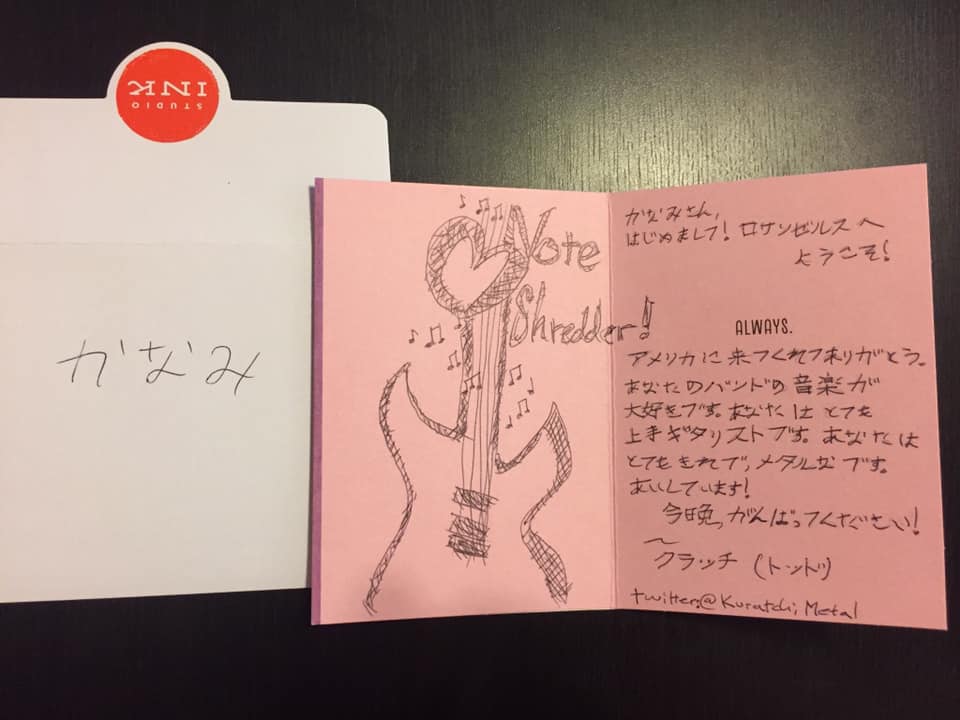 STUDIO
INK
かなみ
Note
Shredder!
かなみさん,
はじめまして! ロサンゼルスへ
ようこそ!
ALWAYS.
アメリカに来てくれてありがとう。
あなたのバンドの音楽が
大好きです。あなたは とても
上手ギタリストです。あなたは
とてもきれで, メタルな です。
あいしています!
今晩, がんばってください!
~
クラッチ (トッド)
twitter:@Kuratchi_Metal